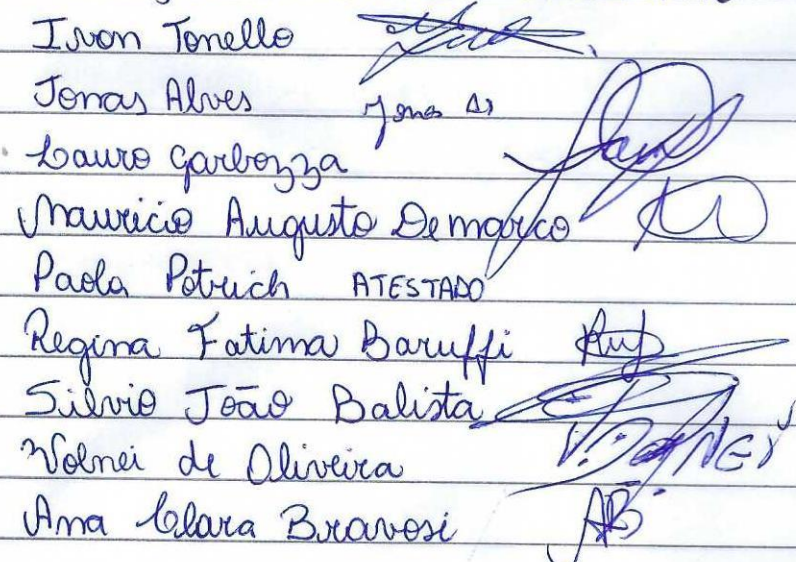 Ivon Tonello
Jonas Alves Jonas As
Lauro Garbozza
Mauricio Augusto Demarco
Paola Potrich ATESTADO
Regina Fatima Baruffi
Silvio João Balista
Volnei de Oliveira
Ana Clara Bravosi AB